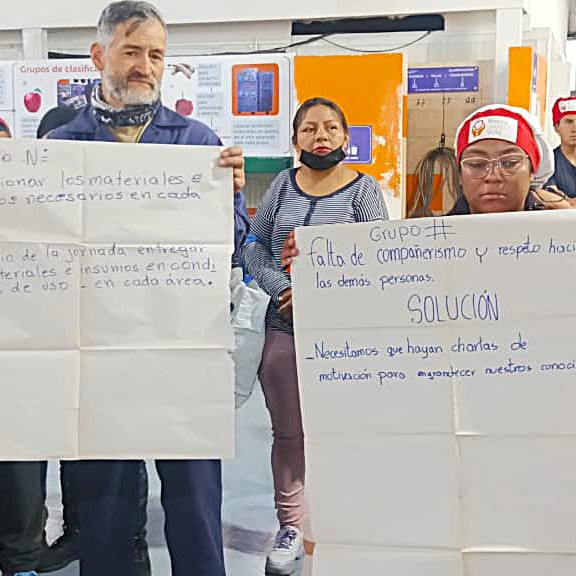 Grupos de clasific
N:
ionar los materiales e
os necesarios en cada
io de la jornada entregar
teriales e insumos en condi
s de uso - en cada área.
Grupo #
falta de compañerismo y respeto haci
las demás personas.
SOLUCIÓN
-Necesitamos que hayan charlas de
motivación para engrandecer nuestros conoci